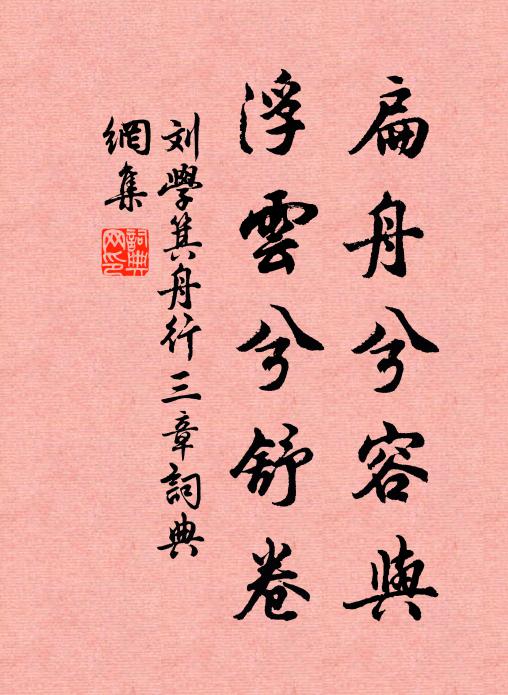 扁舟兮容與
浮雲兮舒卷
刘學箕舟行三章詞典
網集
詞典网印